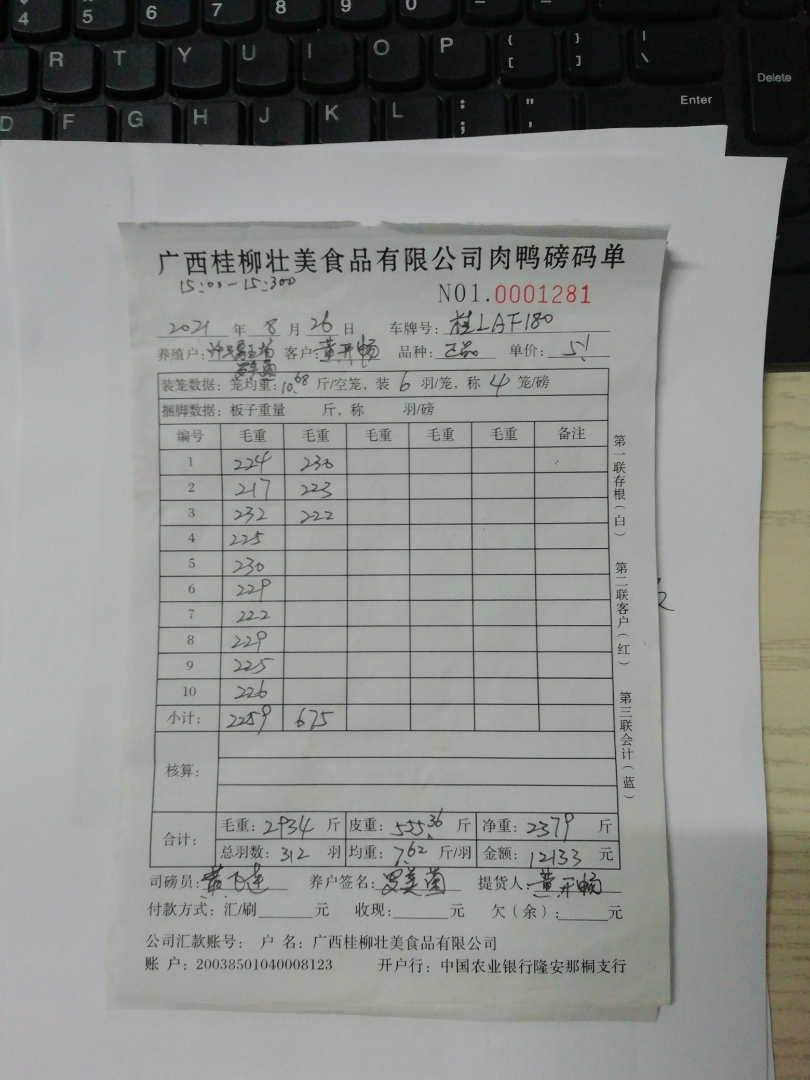 $ 4 % 5 6 7 8 9 0
R T Y U I O P { [ } ] | \ Delete
D F G H J K L : ; " ' Enter
广西桂柳壮美食品有限公司肉鸭磅码单
15:00-15:300
NO1.0001281
2021 年 8 月 26 日 车牌号: 桂LAF180
养殖户: 客户: 黄开畅 品种: 正品 单价: 5.1
装笼数据: 笼均重: 10.68 斤/空笼, 装 6 羽/笼, 称 4 笼/磅
捆脚数据: 板子重量 斤, 称 羽/磅
编号 毛重 毛重 毛重 毛重 毛重 备注
1 224 230
2 217 223
3 232 222
4 225
5 230
6 229
7 222
8 229
9 225
10 226
小计: 2259 675
核算:
合计: 毛重: 2934 斤 皮重: 555.36 斤 净重: 2379 斤
总羽数: 312 羽 均重: 7.62 斤/羽 金额: 12133 元
司磅员: 黄飞连 养户签名: 罗美菌 提货人: 黄开畅
付款方式: 汇/刷______元 收现:______元 欠(余):_____元
公司汇款账号: 户 名: 广西桂柳壮美食品有限公司
账 户: 20038501040008123 开户行: 中国农业银行隆安那桐支行
第一联存根(白)
第二联客户(红)
第三联会计(蓝)